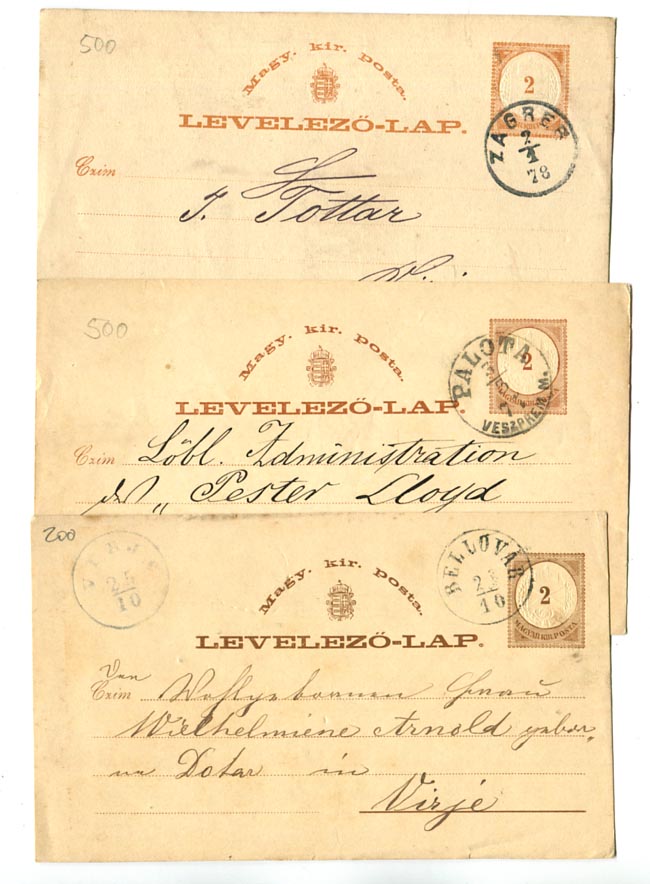 500
Magy. kir. posta.
2
LEVELEZŐ-LAP.
ZAGREB
2
78
Czim
J. Tottar
500
Magy. kir. posta.
2
LEVELEZŐ-LAP.
PALOTA
VESZPRÉM.M.
Czim Löbl. Administration
des „ Pester Lloyd
200
VIRJE
25
10
Magy. kir. posta.
BELLOVÁR
10
2
MAGYAR KIR. POSTA
LEVELEZŐ-LAP.
Czim Wohlgebornen Frau
Wilhelmiene Arnold gebor„
ne Dotar in
Virje